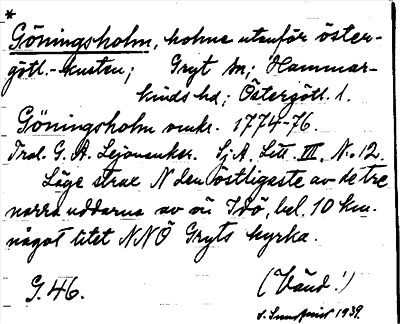 *
Göningsholm, holme utanför öster-
götl.-kusten; Gryt sn; Hammar-
kinds hd; Östergötl. l.
Göningsholm omkr. 1774-76.
Tral. G. A. Lejonanker. Sj. A. Litt. III, No. 12.
Läge strax N den östligaste av de tre
norra uddarna av ön Idö, bel. 10 km.
något litet NNÖ Gryts kyrka.
G. 46. (Vänd!)
1939.